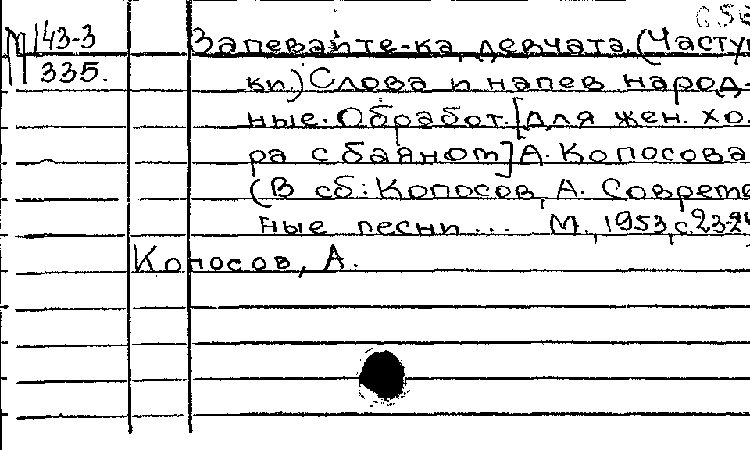 656
М 143-3
335.
Запевайте-ка, девчата. (Частуш
ки.) Слова и напев народ-
ные. Обработ. [для жен. хо.
ра с баяном] А. Колосова
(В сб: Колосов, А. Совреме
ные песни... М., 1953, с.23-24
Колосов, А.